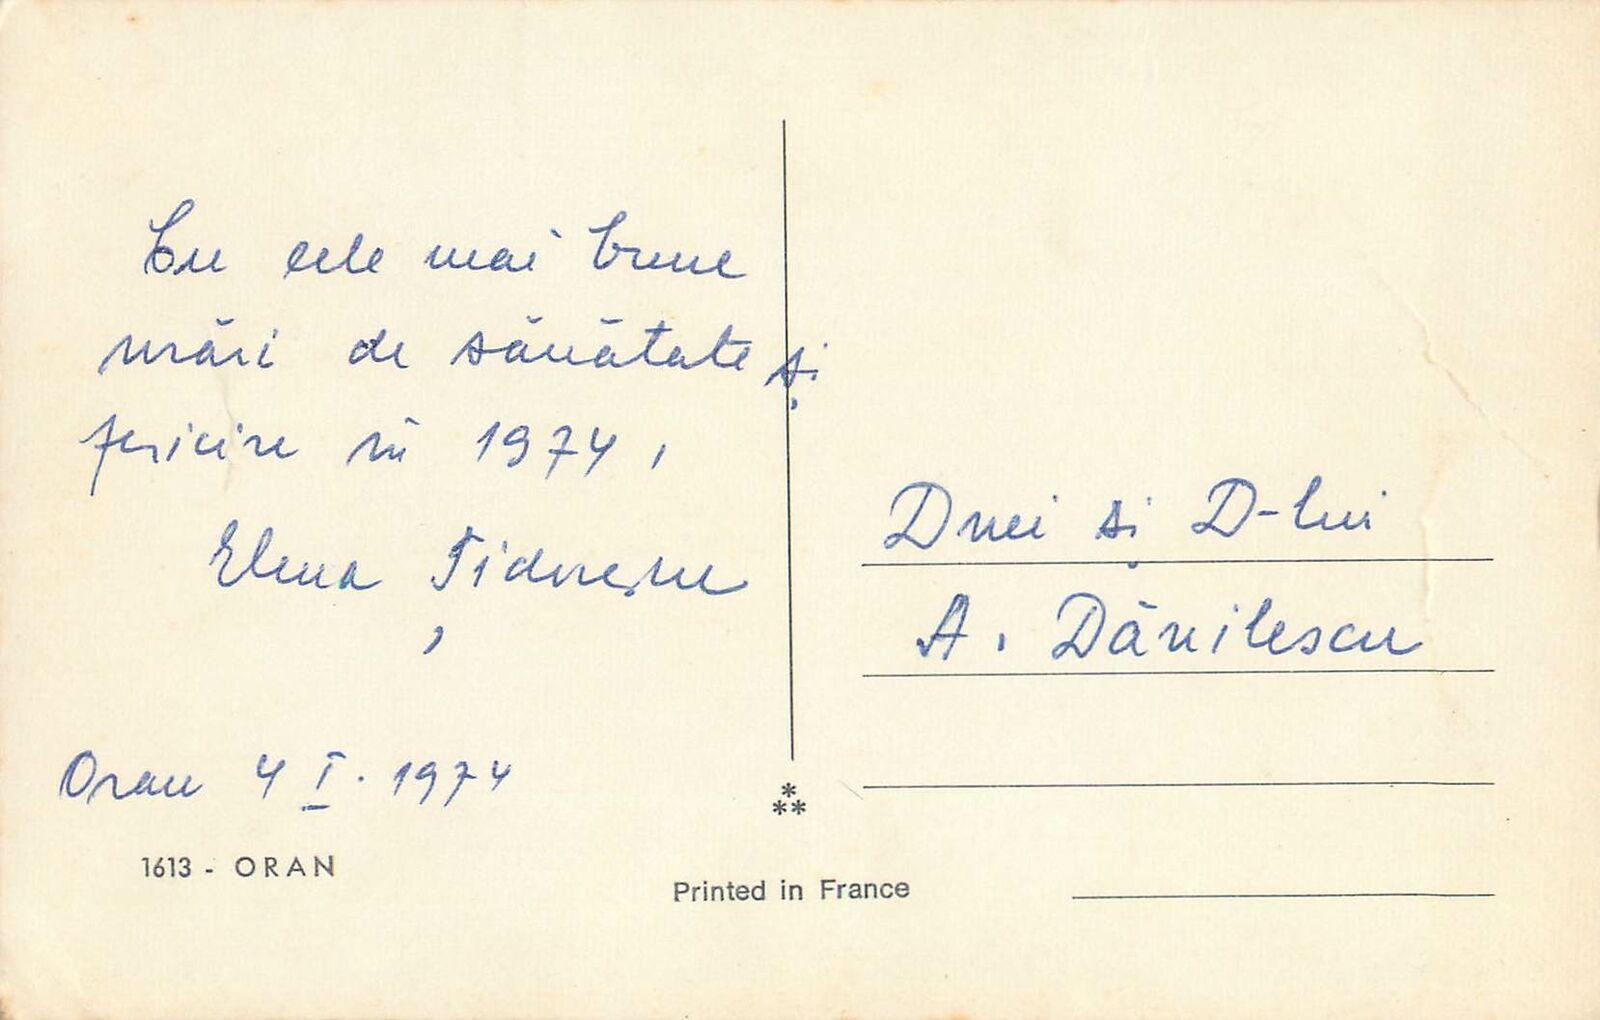 Cu cele mai bune
urări de sănătate și
fericire în 1974,
Elena Țidorescu
Oran 4 I. 1974
1613 - ORAN
Printed in France
Dnei și D-lui
A. Dănilescu